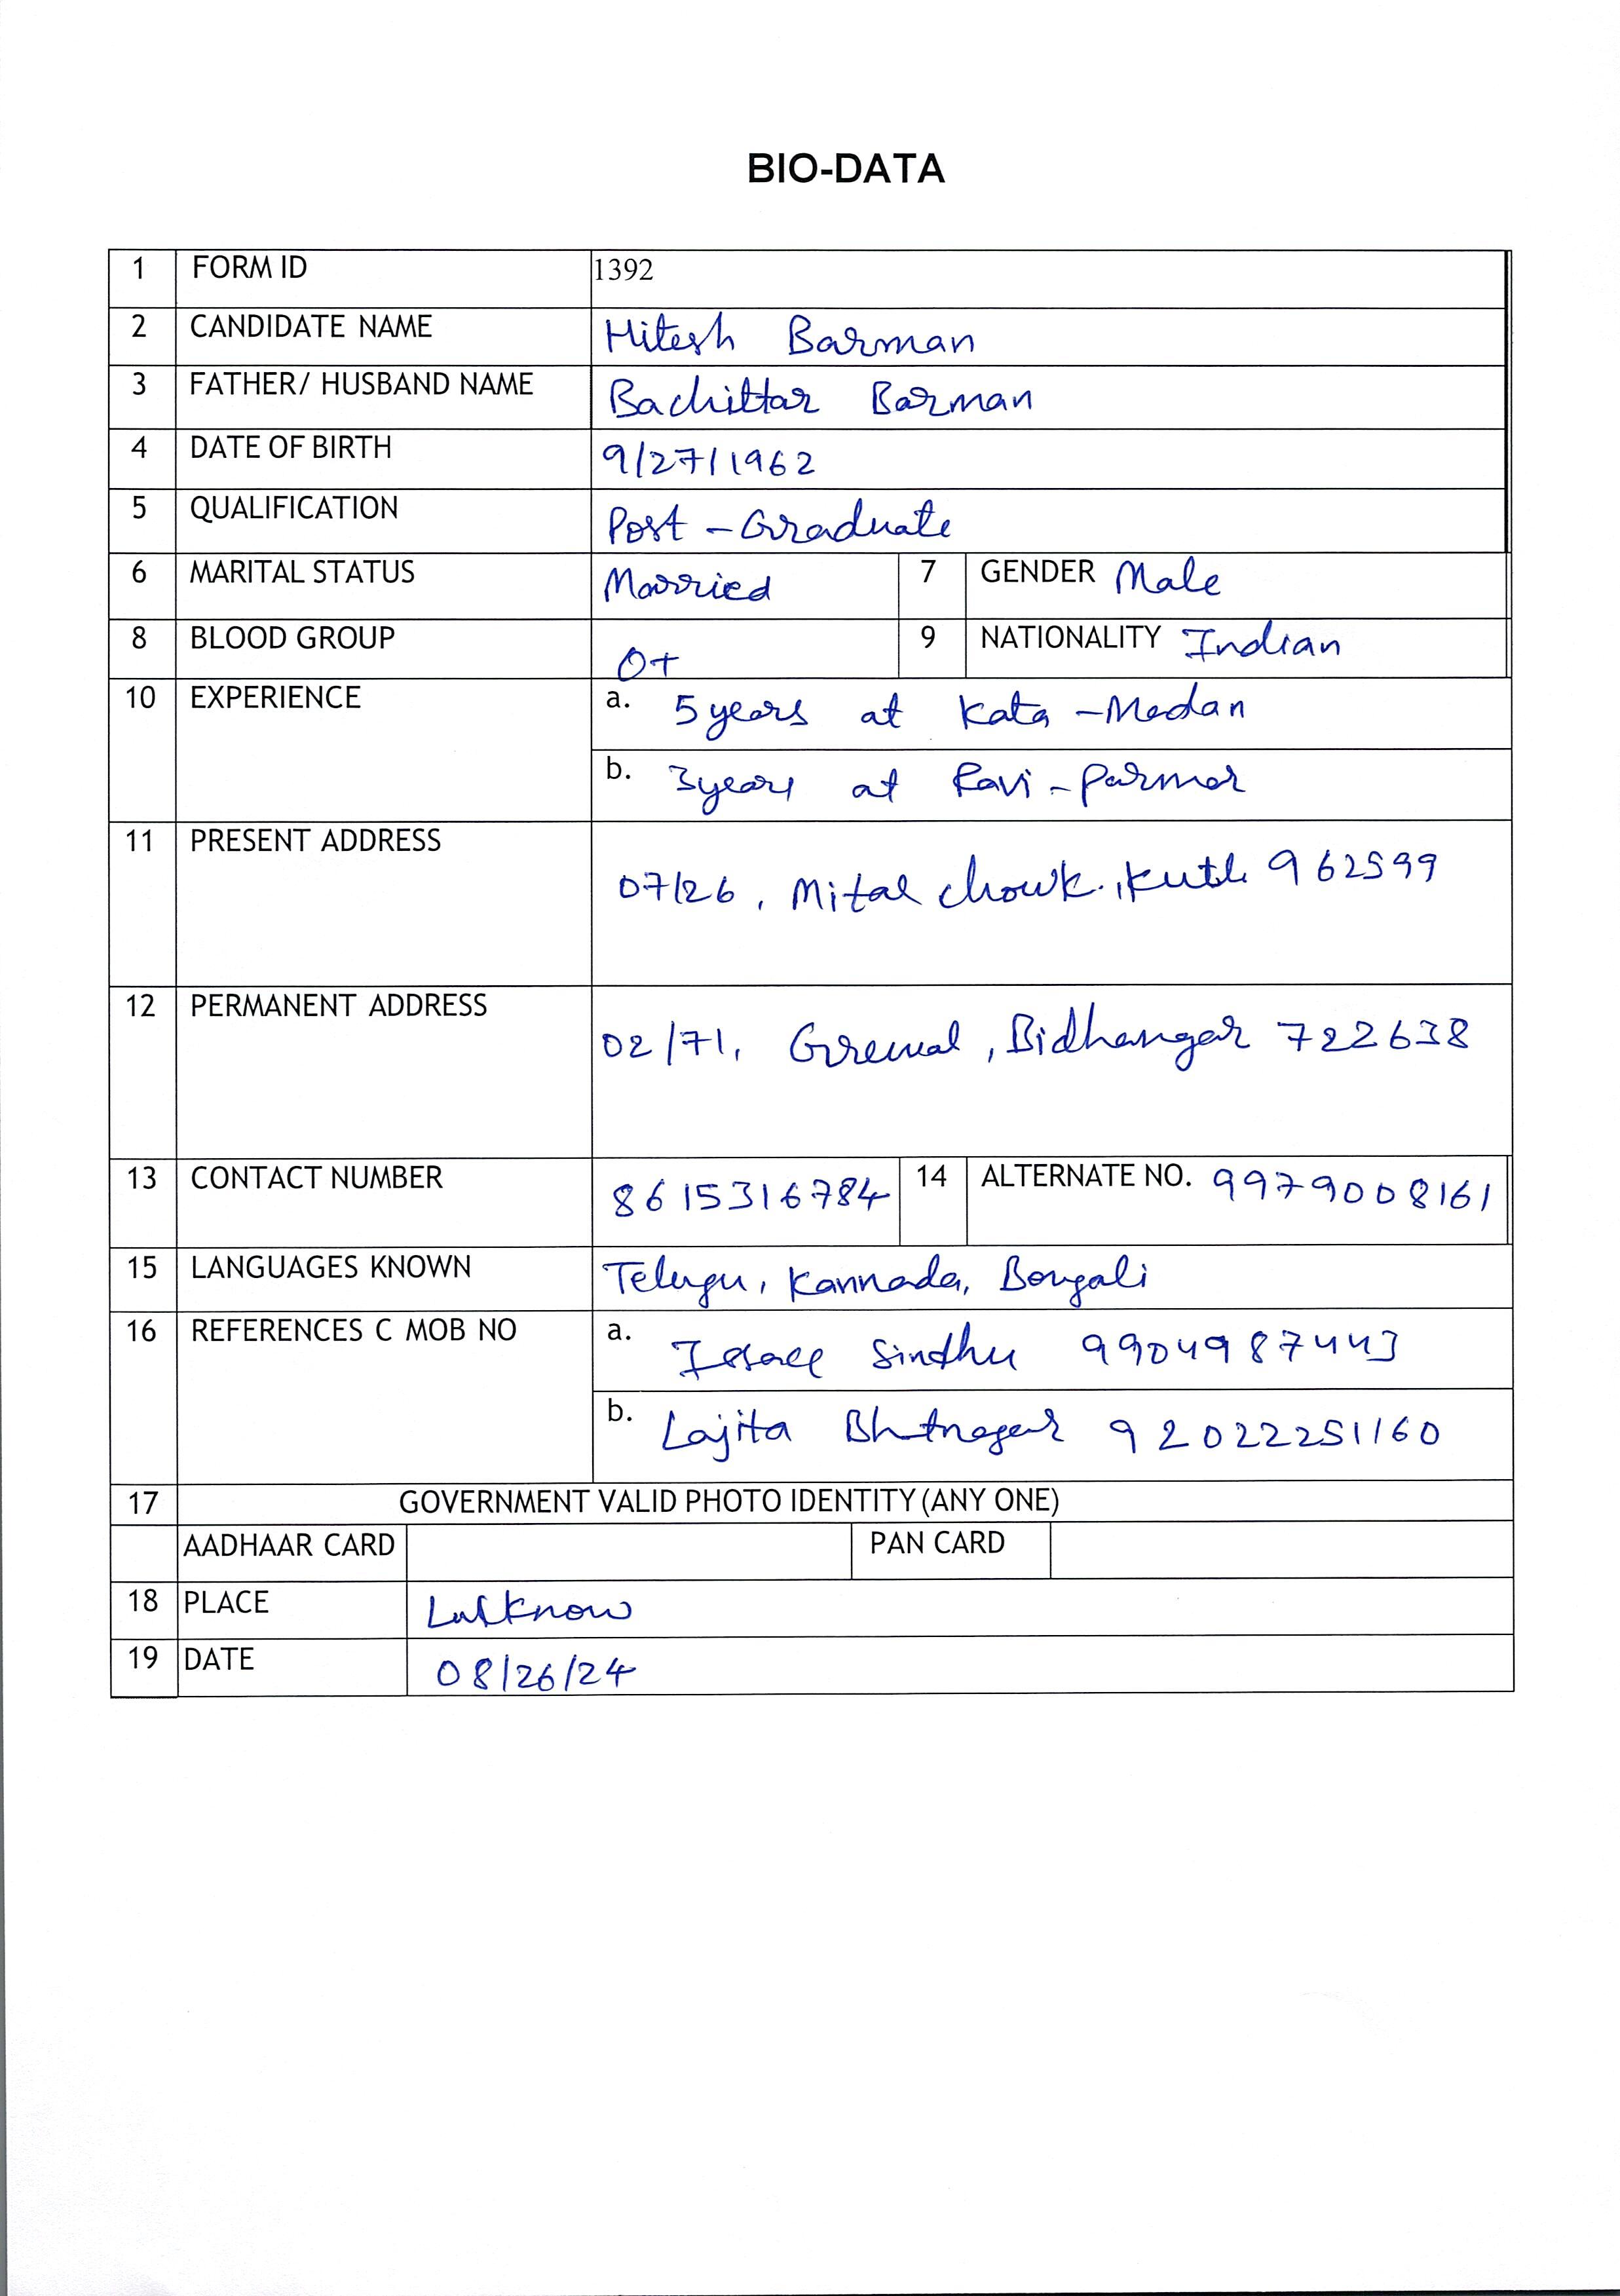 BIO-DATA
1 FORM ID 1392
2 CANDIDATE NAME Hitesh Barman
3 FATHER/ HUSBAND NAME Bachittar Barman
4 DATE OF BIRTH 9/27/1962
5 QUALIFICATION Post-Graduate
6 MARITAL STATUS Married 7 GENDER Male
8 BLOOD GROUP O+ 9 NATIONALITY Indian
10 EXPERIENCE a. 5years at Kata-Madan
b. 3years at Ravi-Parmar
11 PRESENT ADDRESS 07/26, Mital Chowk, 962599
12 PERMANENT ADDRESS 02/71, Grewal, Bidhangar 722638
13 CONTACT NUMBER 8615316784 14 ALTERNATE NO. 9979008161
15 LANGUAGES KNOWN Telugu, Kannada, Bengali
16 REFERENCES C MOB NO a. Sindhu 9904987443
b. Lajita Bhtnagar 92022251160
17 GOVERNMENT VALID PHOTO IDENTITY (ANY ONE)
AADHAAR CARD PAN CARD
18 PLACE
19 DATE 08/26/24